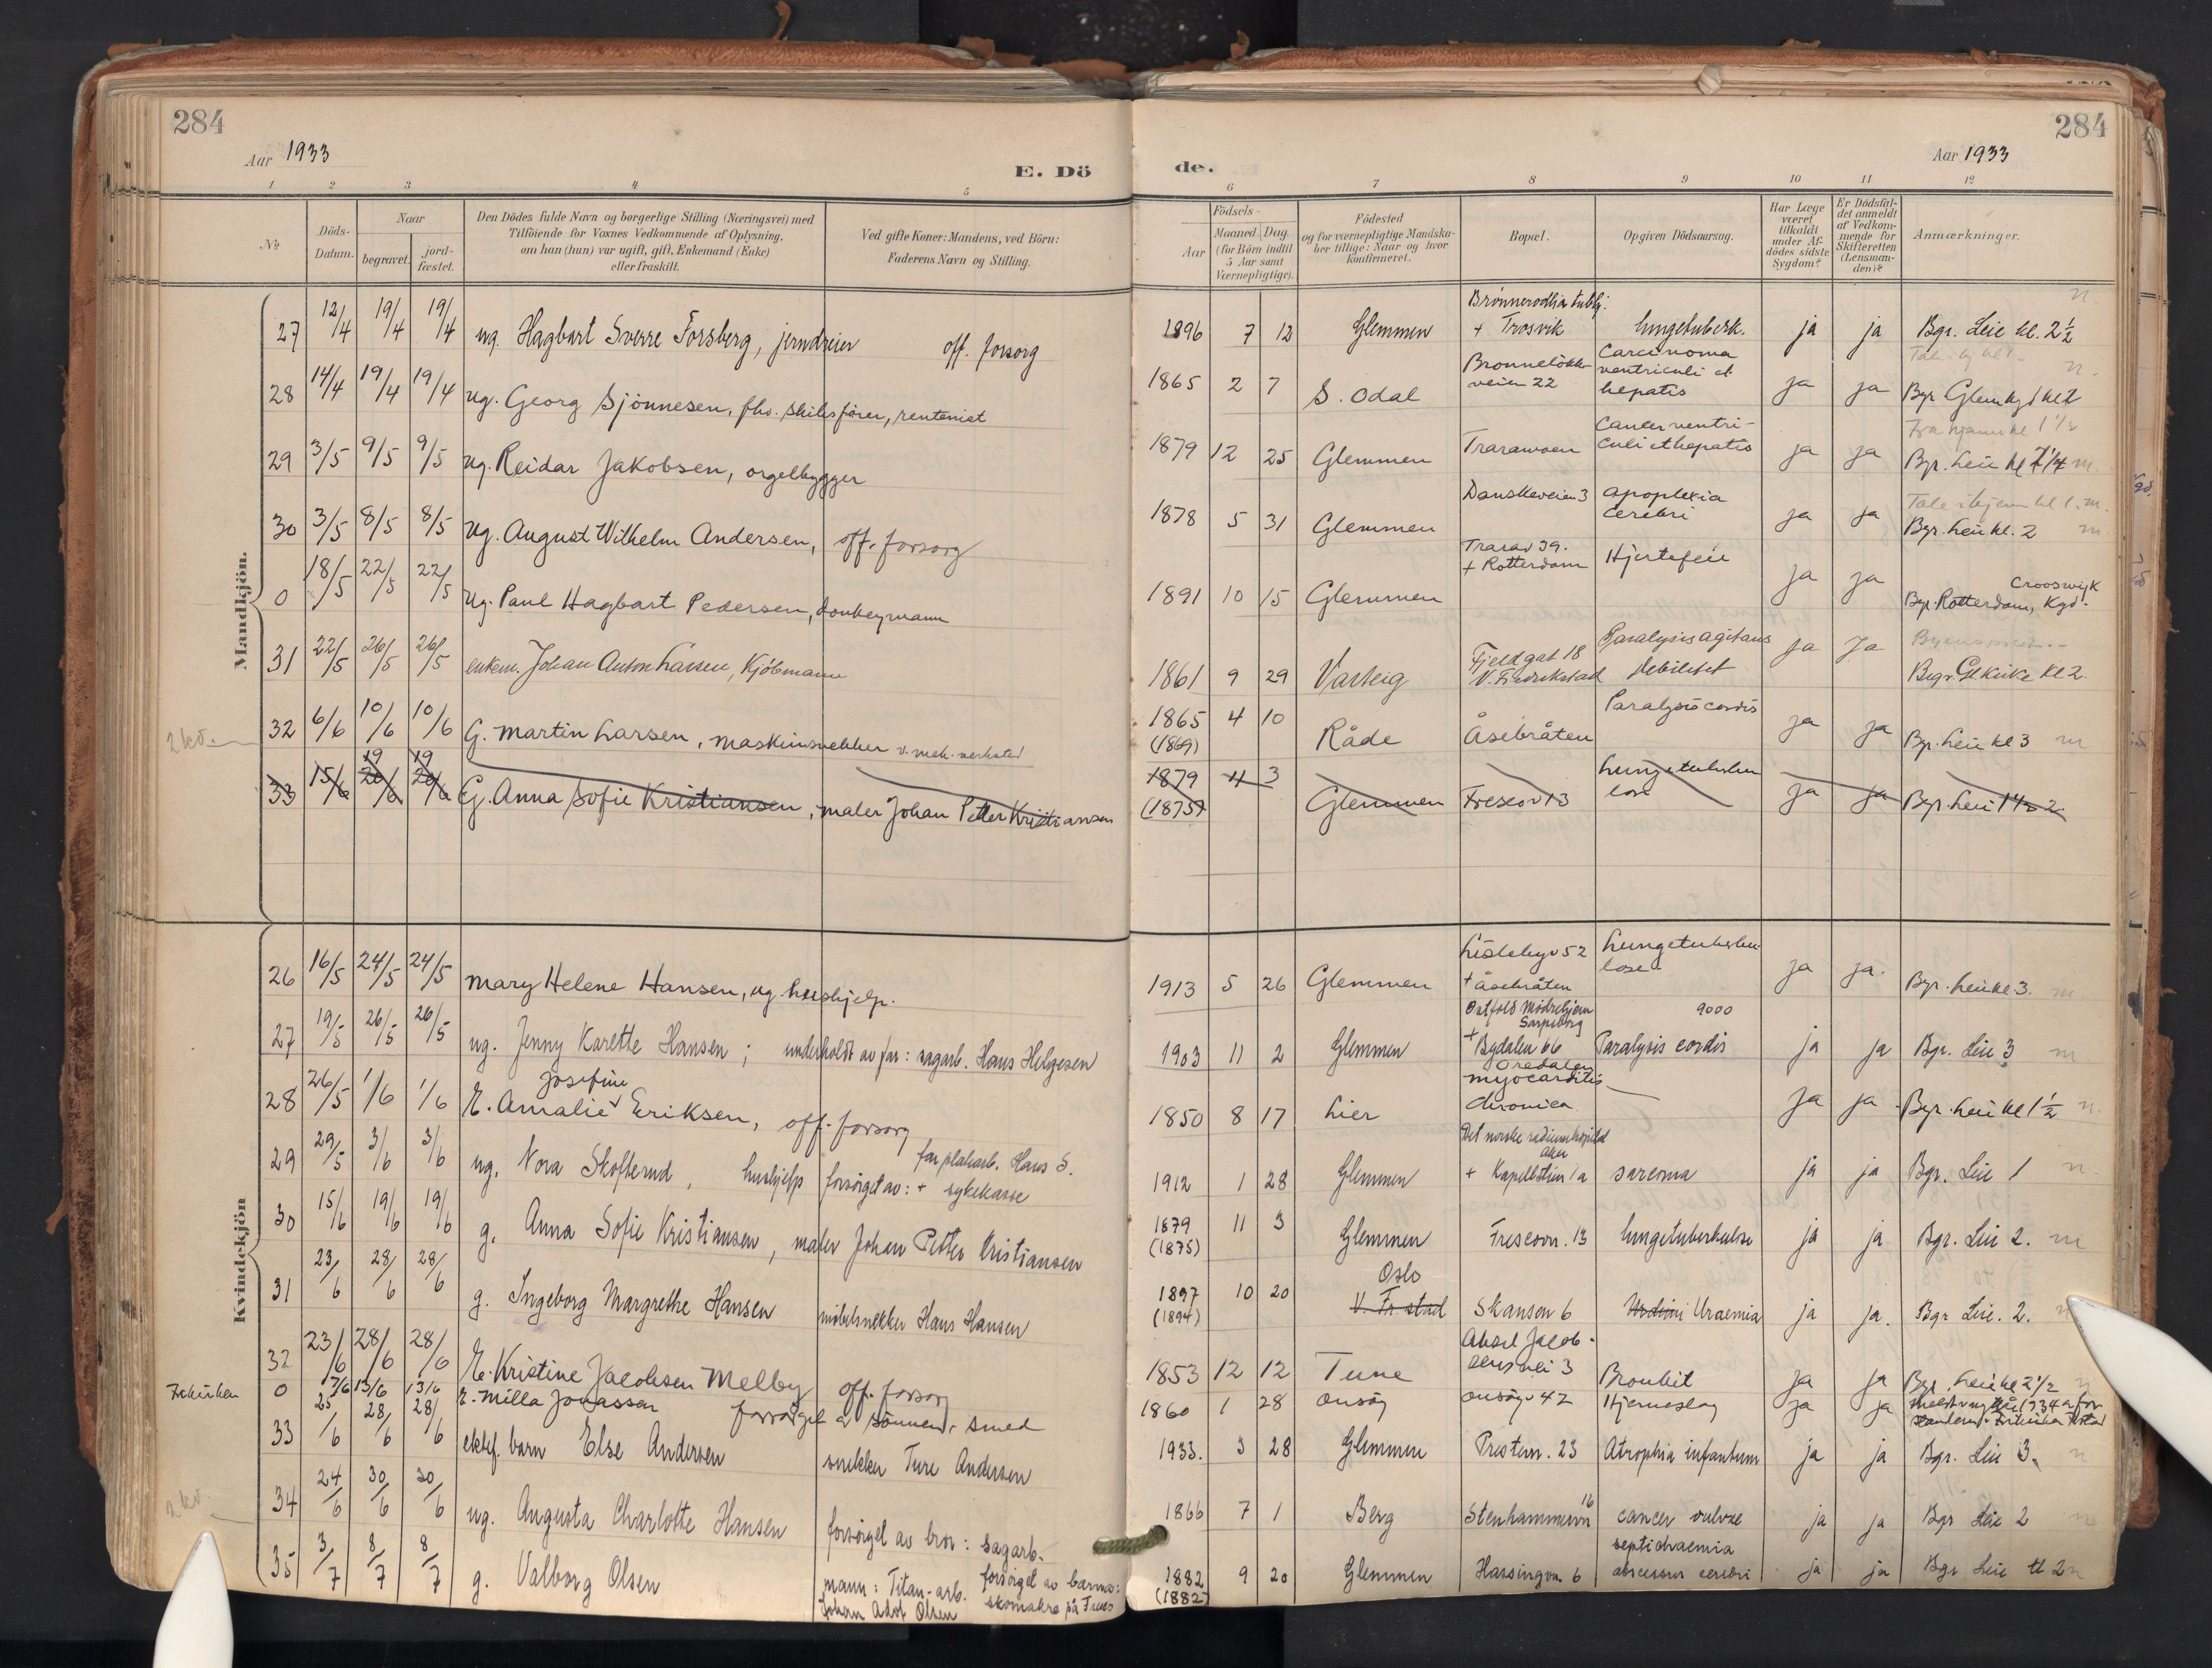 284
284
Aar 1933
E. Dö
de.
Aar 1933
1 2 3 4 5 6 7 8 9 10 11 12
№
Döds-Datum.
Naar
begravet.
jord-fæstet.
Den Dödes fulde Navn og borgerlige Stilling (Næringsvei) med
Tilföiende for Voxnes Vedkommende af Oplysning,
om han (hun) var ugift, gift, Enkemand (Enke)
eller fraskilt.
Ved gifte Koner: Mandens, ved Börn:
Faderens Navn og Stilling.
Födsels-
Aar
Maaned. Dag
(for Börn indtil
5 Aar samt
Værnepligtige).
Födested
og for værnepligtige Mandska-
ber tillige: Naar og hvor
konfirmeret.
Bopæl.
Opgiven Dödsaarsag.
Har Læge
været
tilkaldt
under Af-
dödes sidste
Sygdom?
Er Dödsfal-
det anmeldt
af Vedkom-
mende for
Skifteretten
(Lensman-
den)?
Anmærkninger.
Mandkjön.
27 12/4 19/4 19/4 ug. Hagbart Sverre Forsberg, jerndreier off. forsorg 1896 7 12 Glemmen + Trosvik lungetuberk. ja ja Bgr. Leie kl. 2½
28 14/4 19/4 19/4 ug. Georg Sjönnesen, fhv. skibsförer, rentenist 1865 2 7 S. Odal Brønneløkkveien 22 Carcinoma ventriculi et hepatis ja ja Bgr Glem kgd kl 2
29 3/5 9/5 9/5 ug. Reidar Jakobsen, orgelbygger 1879 12 25 Glemmen Traraveien Cancer ventriculi et hepatis ja ja Bgr. Leie kl
30 3/5 8/5 8/5 ug. August Wilhelm Andersen, off. forsorg 1878 5 31 Glemmen Danskeveien 3 apoplexia cerebri ja ja Tale i hjem kl 1. Bgr. Leie kl. 2
0 18/5 22/5 22/5 ug. Paul Hagbart Pedersen, donkeymann 1891 10 15 Glemmen Trarav 39. + Rotterdam Hjertefeil ja ja Bgr. Rotterdam, Crooswijk Kgd.
31 22/5 26/5 26/5 enkem. Johan Anton Larsen, Kjöbmann 1861 9 29 Varteig Fjeldgat 18 V. Fredrikstad Paralysis agitans debilitet ja ja Begr. Gl kirke kl 2.
2 kv.
32 6/6 10/6 10/6 G. Martin Larsen, maskinsnekker v. mek. verksted 1865 (1869) 4 10 Råde Åsebråten Paralysis cordis ja ja Bgr. Leie kl 3
33 15/6 20/6 20/6 19 19 G. Anna Sofie Kristiansen, maler Johan Petter Kristiansen 1879 (1875) 11 3 Glemmen Frescov 13 Lungetuberkulose ja ja Bgr. Leie 2.
Kvindekjön
26 16/5 24/5 24/5 Mary Helene Hansen, ug. hushjelp. 1913 5 26 Glemmen Lislebyv 52 + Åsebråten Lungetuberkulose ja ja. Bgr. Leie kl 3.
27 19/5 26/5 26/5 ug. Jenny Karette Hansen; underholdt av far: sagarb. Hans Helgesen 1903 11 2 Glemmen Østfold Mødrehjem Sarpsborg + Bydalen 66 9000 Paralysis cordis ja ja Bgr. Leie 3
28 26/5 1/6 1/6 E. Amalie Josefine Eriksen, off. forsorg 1850 8 17 Lier Oredalen myocarditis chronica ja ja Bgr. Leie kl 1½
29 29/5 3/6 3/6 ug. Nora Skofterud, hushjelp forsörget av: far platearb. Hans S. + sykekasse 1912 1 28 Glemmen Det norske radiumhospital Aker + Kapellstien 1a sarcoma ja ja Bgr. Leie 1
30 15/6 19/6 19/6 g. Anna Sofie Kristiansen, maler Johan Petter Kristiansen 1879 (1875) 11 3 Glemmen Frescovn. 13 lungetuberkulose ja ja Bgr. Leie 2.
31 23/6 28/6 28/6 g. Ingeborg Margrethe Hansen möbelsnekker Hans Hansen 1897 (1894) 10 20 Oslo V. Fr.stad Skansen 6 Uraemia ja ja. Bgr Leie. 2.
32 23/6 28/6 28/6 E. Kristine Jacobsen Melby off. forsorg 1853 12 12 Tune Aksel Jacobsens vei 3 Bronkit ja ja Bgr. Leie kl 2½
Frkirken
0 7/6 13/6 13/6 E. Milla Jonassen forsörget av sönnen, smed 1860 1 28 Onsöy Onsöyv 42 Hjerneslag ja ja
33 25/6 28/6 28/6 ektef. barn Else Andersen snekker Ture Andersen 1933. 3 28 Glemmen Prestevn. 23 Atrophia infantum ja ja Bgr. Leie 3.
2 kv.
34 24/6 30/6 30/6 ug. Augusta Charlotte Hansen forsörget av bror: sagarb. 1866 7 1 Berg Stenhammervn 16 cancer vulvae ja ja Bgr Leie 2
35 3/7 8/7 8/7 g. Valborg Olsen mann: Titan-arb. Johan Adof Olsen forsörget av barna: skomakre på Fresco 1882 (1882) 9 20 Glemmen Hassingvn. 6 septichaemia abscessus cerebri ja ja Bgr Leie kl 2